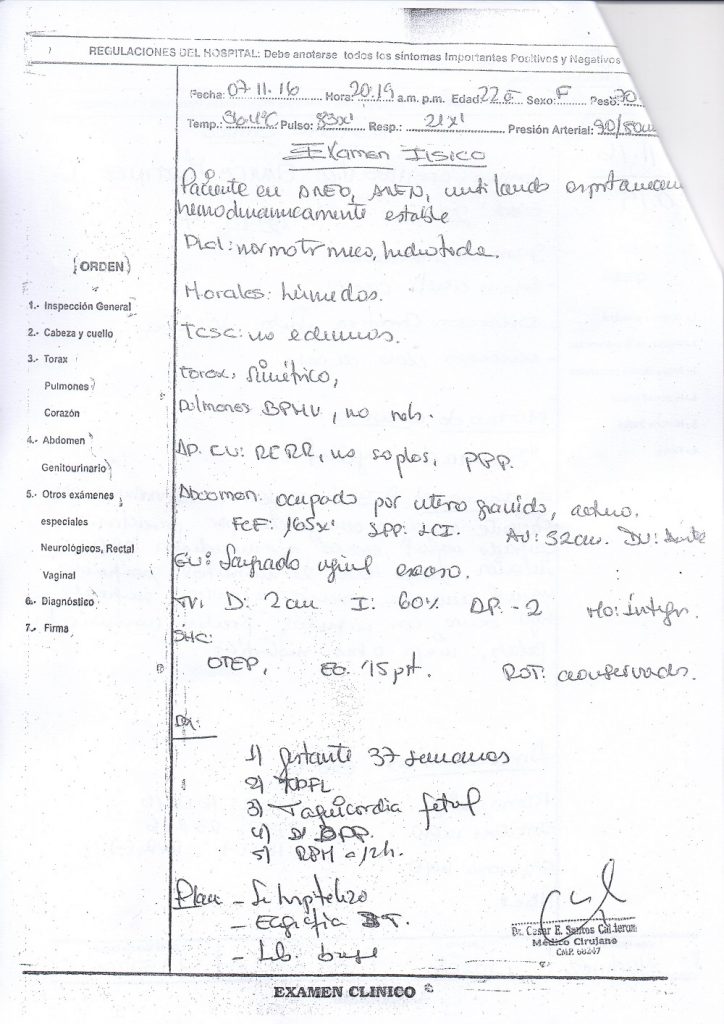 REGULACIONES DEL HOSPITAL: Debe anotarse todos los síntomas Importantes Positivos y Negativos
Fecha: 07 11. 16 Hora: 20.19 a.m. p.m. Edad: 22 a Sexo: F Peso: 70
Temp.: 36.4°C Pulso: 83x' Resp.: 21x' Presión Arterial: 90/50
Examen Fisico
Paciente en AREG, AREN, ventilando espontaneam
hemodinamicamente estable
Piel: normotermico, hidratada.
(ORDEN)
Morales: húmedos.
1.- Inspección General
TCSC: no edemas.
2.- Cabeza y cuello
3.- Torax
Torax: Simétrico,
Pulmones
Pulmones BPMV, no
Corazón
4.- Abdomen
AP. CV: RCRR, no soplos, PPP.
Genitourinario
5.- Otros exámenes
Abdomen: ocupado por utero gravido,
especiales
FCF: 165x' SPP: LCI. AU: 32cm. DU:
Neurológicos, Rectal
GU: Sangrado escaso.
Vaginal
6.- Diagnóstico
TV: D: 2cm I: 60% AP. -2 Mo: íntegr.
7.- Firma
SNC:
OTEP, EG. 15 pt. ROT: conservados.
Dx:
1) gestante 37 semanas
2)
3) Taquicardia fetal
4) D/
5) RPM 12h.
Plan - Se hospitaliza
- Ecografia
- Lab. base
Dr. Cesar E. Santos Calderon
Médico Cirujano
CMP. 68247
EXAMEN CLINICO